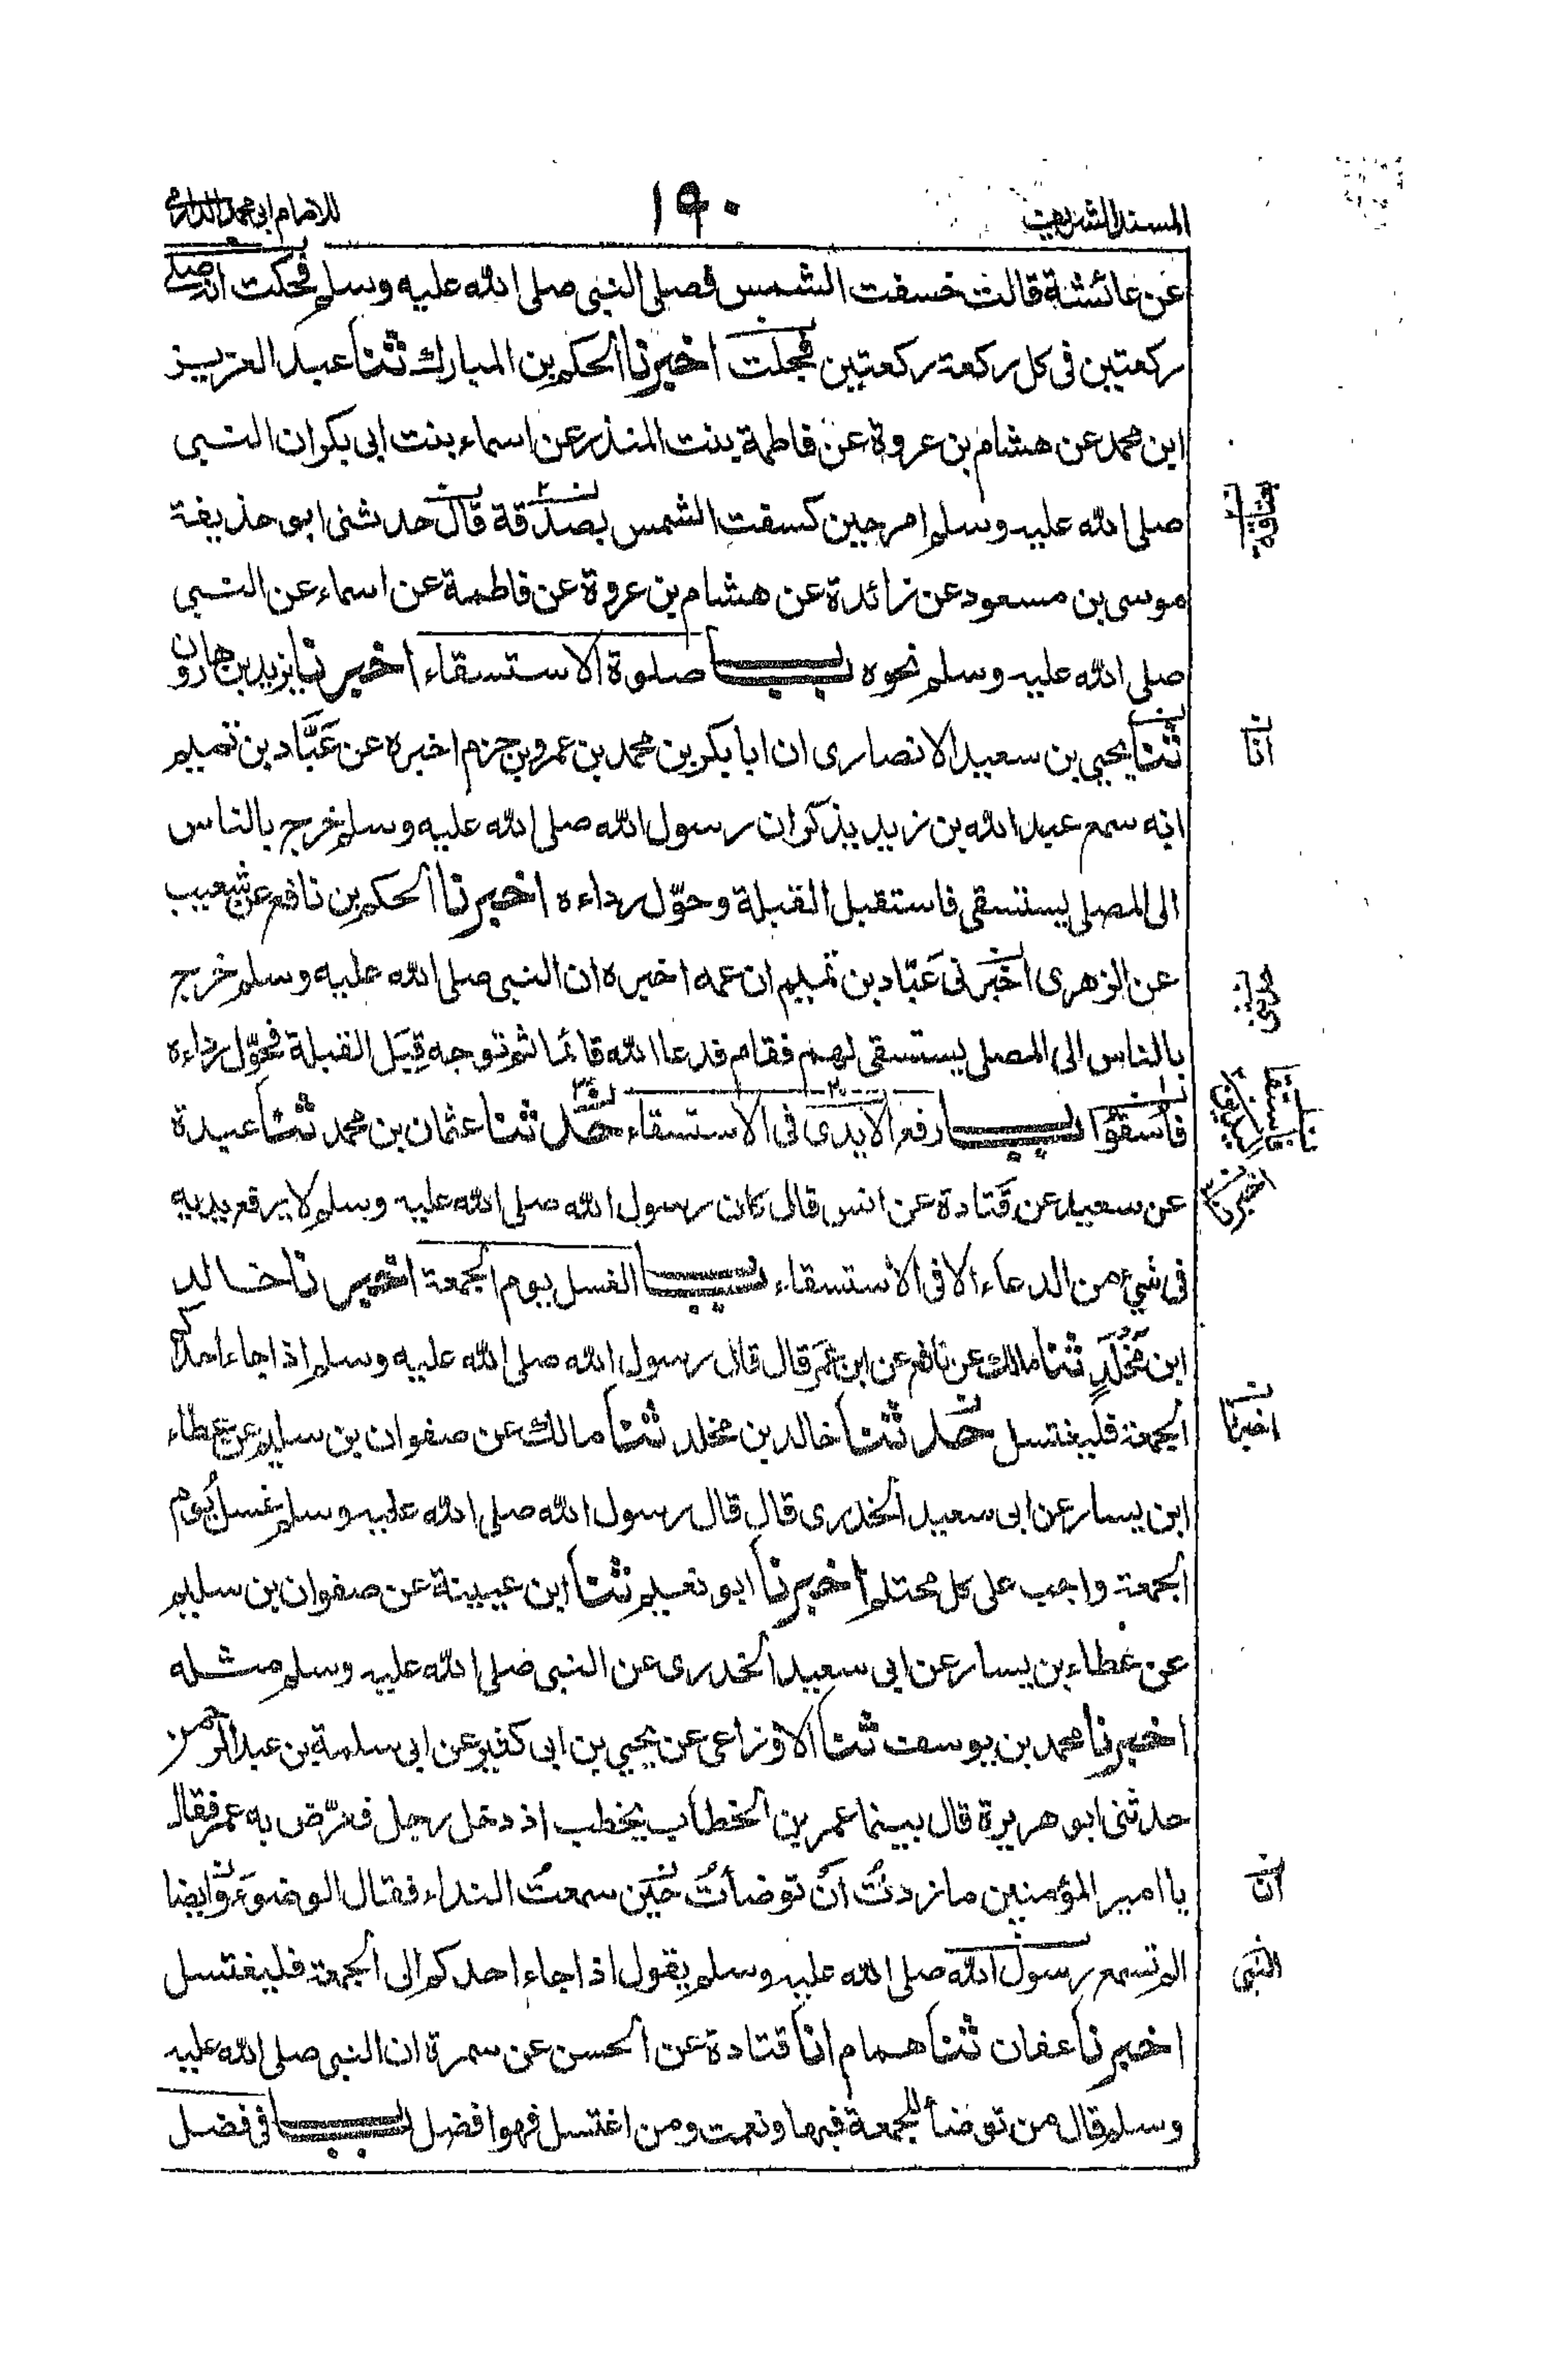 المسند الشريف
١٩٠
للامام ابي محمد الدارمي
عن عائشة قالت خسفت الشمس فصلى النبي صلى الله عليه وسلم فحكت انه صلى
ركعتين فى كل ركعة ركعتين فجلت اخبرنا الحكم بن المبارك ثنا عبد العزيز
ابن محمد عن هشام بن عروة عن فاطمة بنت المنذر عن اسماء بنت ابى بكر ان النبى
صلى الله عليه وسلم امر حين كسفت الشمس بصدقة قال حدثنى ابو حذيفة
موسى بن مسعود عن زائدة عن هشام بن عروة عن فاطمة عن اسماء عن النبى
صلى الله عليه وسلم نحوه باب صلوة الاستسقاء اخبرنا يزيد بن هارون
ثنا يحيى بن سعيد الانصارى ان ابا بكر بن محمد بن عمرو بن حزم اخبره عن عَبَّاد بن تميم
انه سمع عبد الله بن زيد يذكر ان رسول الله صلى الله عليه وسلم خرج بالناس
الى المصلى يستسقى فاستقبل القبلة وحوّل رداءه اخبرنا الحكم بن نافع عن شعيب
عن الزهرى اخبرنى عَبّاد بن تميم ان عمه اخبره ان النبى صلى الله عليه وسلم خرج
بالناس الى المصلى يستسقى لهم فقام فدعا الله قائما ثم توجه قِبَل القبلة فحوّل رداءه
فأسقوا باب رفع الايدى فى الاستسقاء حدثنا عثمان بن محمد ثنا عبدة
عن سعيد عن قتادة عن انس قال كان رسول الله صلى الله عليه وسلم لا يرفع يديه
فى شئ من الدعاء الا فى الاستسقاء باب الغسل يوم الجمعة اخبرنا خالد
ابن مَخْلَدٍ ثنا مالك عن نافع عن ابن عمر قال قال رسول الله صلى الله عليه وسلم اذا جاء احدكم
الجمعة فليغتسل حدثنا خالد بن مخلد ثنا مالك عن صفوان بن سليم عن عطاء
ابن يسار عن ابى سعيد الخدرى قال قال رسول الله صلى الله عليه وسلم غسل يوم
الجمعة واجب على كل محتلم اخبرنا ابو نعيم ثنا ابن عيينة عن صفوان بن سليم
عن عطاء بن يسار عن ابى سعيد الخدرى عن النبى صلى الله عليه وسلم مثله
اخبرنا محمد بن يوسف ثنا الاوزاعى عن يحيى بن ابى كثير عن ابى سلمة بن عبد الرحمن
حدثنى ابو هريرة قال بينما عمر بن الخطاب يخطب اذ دخل رجل فعرّض به عمر فقال
يا امير المؤمنين ما زدتُ اَنْ توضأتُ حين سمعتُ النداء فقال الوضوءَ وايضا
الم تسمع رسول الله صلى الله عليه وسلم يقول اذا جاء احدكم الى الجمعة فليغتسل
اخبرنا عفان ثنا همام انا قتادة عن الحسن عن سمرة ان النبى صلى الله عليه
وسلم قال من توضأ للجمعة فبها ونعمت ومن اغتسل فهو افضل باب فى فضل
بعتاقة
انا
حدثنى
اخبرنا
اخبرنا
ان
النبى